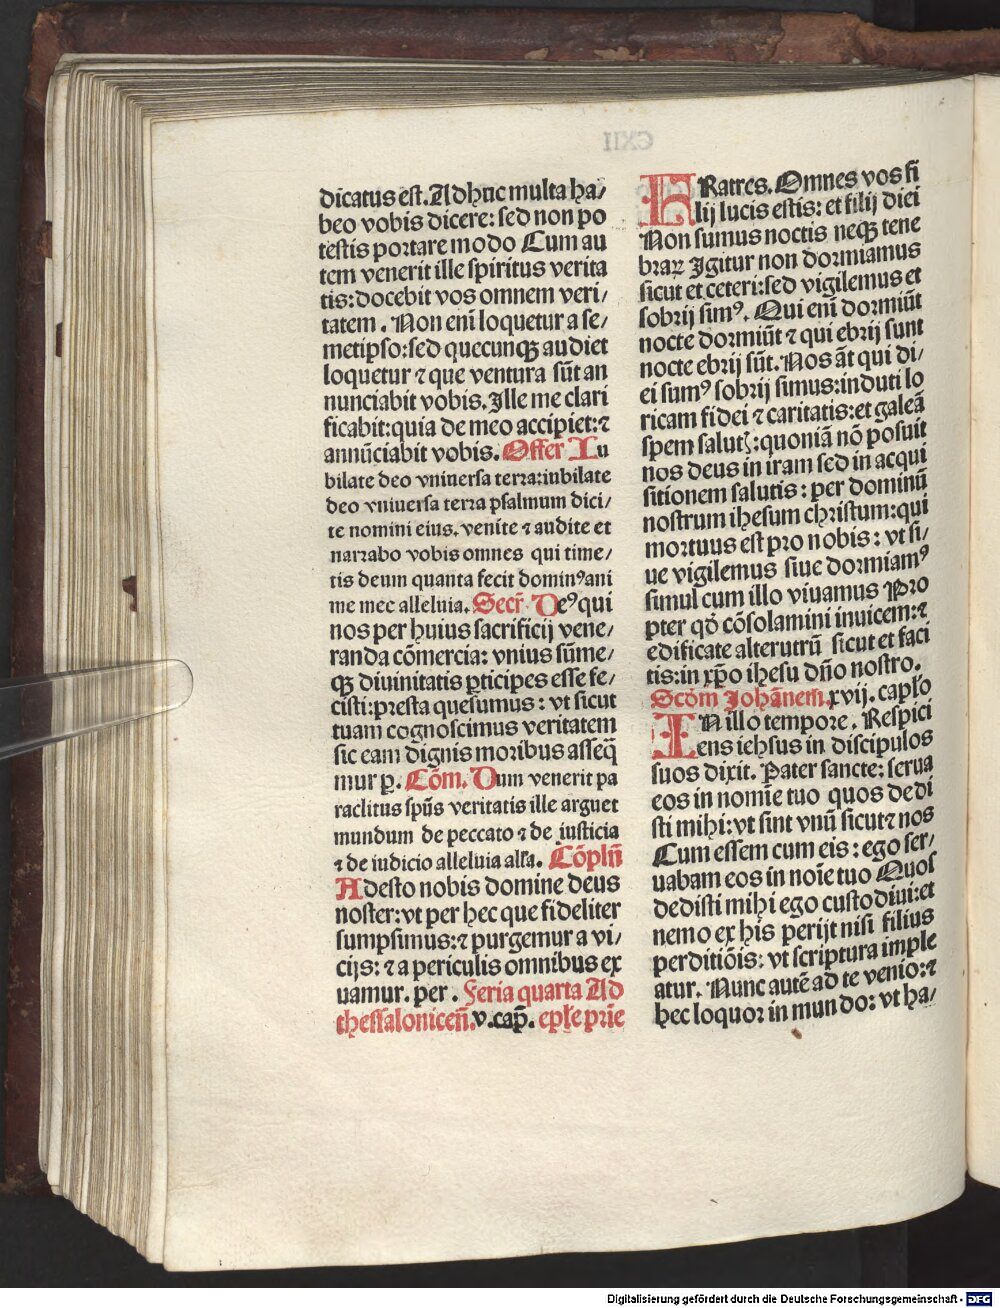 dicatus est. Adhuc multa ha/
beo vobis dicere: sed non po
testis portare modo Cum au
tem venerit ille spiritus verita
tis: docebit vos omnem veri/
tatem. Non eni̅ loquetur a se/
metipso: sed quecunqꝫ audiet
loquetur ⁊ que ventura su̅t an
nunciabit vobis. Ille me clari
ficabit: quia de meo accipiet: ⁊
annu̅ciabit vobis. Offer Iu
bilate deo vniuersa terra: iubilate
deo vniuersa terra psalmum dici/
te nomini eius. venite ⁊ audite et
narrabo vobis omnes qui time/
tis deum quanta fecit dominꝰ ani
me mee alleluia. Secr̄ Deꝰ qui
nos per huius sacrificij vene/
randa co̅mercia: vnius su̅me/
qꝫ diuinitatis ꝑticipes esse fe/
cisti: presta quesumus: vt sicut
tuam cognoscimus veritatem
sic eam dignis moribus asseq̅
mur ꝑ. Co̅m. Dum venerit pa
raclitus sp̅us veritatis ille arguet
mundum de peccato ⁊ de iusticia
⁊ de iudicio alleluia alł'a. Co̅pln̅
Adesto nobis domine deus
noster: vt per hec que fideliter
sumpsimus: ⁊ purgemur a vi/
cijs: ⁊ a periculis omnibus ex
uamur. per. Feria quarta Ad
thessalonicen̅. v. cap̅. ep̅łe pri̅e
FRatres. Omnes vos fi
lij lucis estis: et filij diei
Non sumus noctis neqꝫ tene
braꝝ Igitur non dormiamus
sicut et ceteri: sed vigilemus et
sobrij simꝰ. Qui eni̅ dormiu̅t
nocte dormiu̅t ⁊ qui ebrij sunt
nocte ebrij su̅t. Nos a̅t qui di/
ei sumꝰ sobrij simus: induti lo
ricam fidei ⁊ caritatis: et galea̅
spem salutꝭ: quonia̅ no̅ posuit
nos deus in iram sed in acqui
sitionem salutis: per dominu̅
nostrum ihesum christum: qui
mortuus est pro nobis: vt si/
ue vigilemus siue dormiamꝰ
simul cum illo viuamus Pro
pter qd̅ co̅solamini inuicem: ⁊
edificate alterutru̅ sicut et faci
tis: in xp̅o ihesu dn̅o nostro.
Scd̅m Joha̅nem. xvij. capł'o
IN illo tempore. Respici
ens iehsus in discipulos
suos dixit. Pater sancte: serua
eos in nomi̅e tuo quos dedi
sti mihi: vt sint vnu̅ sicut ⁊ nos
Cum essem cum eis: ego ser/
uabam eos in noi̅e tuo Quos
dedisti mihi ego custodiui: et
nemo ex his perijt nisi filius
perditio̅is: vt scriptura imple
atur. Nunc aute̅ ad te venio: ⁊
hec loquor in mundo: vt ha/
CXII
Digitalisierung gefördert durch die Deutsche Forschungsgemeinschaft - DFG